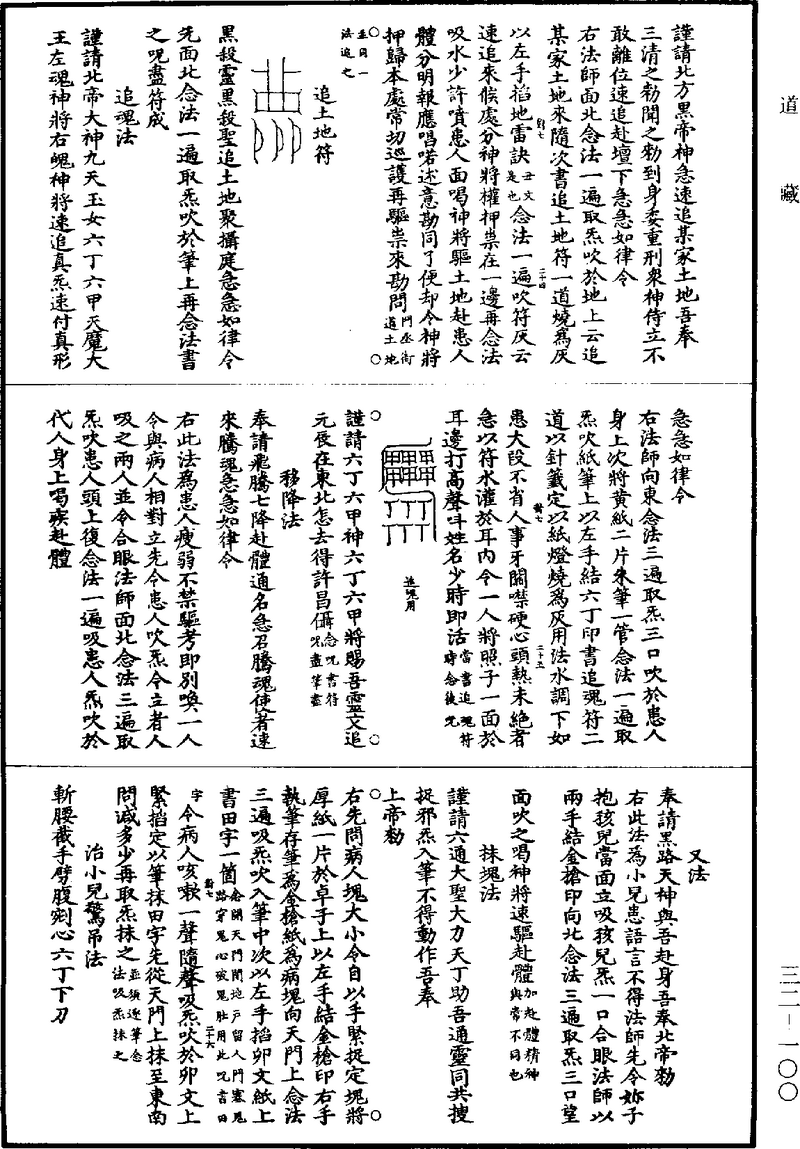 道藏
三二—一〇〇
謹請北方黑帝神急速追某家土地吾奉
三清之勑聞之勑到身委重刑衆神侍立不
敢離位速追赴壇下急急如律令
右法師面北念法一遍取炁吹於地上云追
某家土地來隨次書追土地符一道燒為灰
以左手掐地雷訣丑文是也念法一遍吹符灰云
速追來候處分神將權押祟在一邊再念法
吸水少許噴患人面喝神將驅土地赴患人
體分明報應唱喏述意勘同了便却令神將
押歸本處常切巡護再驅祟來勘問門丞街道土地
並同一法追之
追土地符
黑殺靈黑殺聖追土地聚攝庭急急如律令
先面北念法一遍取炁吹於筆上再念法書
之呪盡符成
追魂法
謹請北帝大神九天玉女六丁六甲天魔大
王左魂神將右魄神將速追真炁速付真形
急急如律令
右法師向東念法三遍取炁三口吹於患人
身上次將黃紙二片朱筆一管念法一遍取
炁吹紙筆上以左手結六丁印書追魂符二
道以針籤定以紙燈燒為灰用法水調下如
患大段不省人事牙關噤硬心頭熱未絕者
急以符水灌於耳內令一人將照子一面於
耳邊打高聲叫姓名少時即活當書追魂符時念後呪
追魂用
謹請六丁六甲神六丁六甲將賜吾靈文追
元辰在東北怎去得許昌儞念呪書符呪盡筆盡
移降法
奉請飛騰七降赴體通名急召騰魂使者速
來騰魂急急如律令
右此法為患人瘦弱不禁驅考即別喚一人
令與病人相對立先令患人吹炁令立者人
吸之兩人並令合眼法師面北念法三遍取
炁吹患人頭上復念法一遍吸患人炁吹於
代人身上喝疾赴體
又法
奉請黑路天神與吾赴身吾奉北帝勑
右此法為小兒患語言不得法師先令妳子
抱孩兒當面立吸孩兒炁一口合眼法師以
兩手結金槍印向北念法三遍取炁三口望
面吹之喝神將速驅赴體加赴體精神與常不同也
抹塊法
謹請六通大聖大力天丁助吾通靈同共搜
捉邪炁入筆不得動作吾奉
上帝勑
右先問病人塊大小令自以手緊捉定塊將
厚紙一片於卓子上以左手結金槍印右手
執筆存筆為金槍紙為病塊向天門上念法
三遍吸炁吹入筆中次以左手掐卯文紙上
書田字一箇念開天門閉地戶留人門塞鬼路穿鬼心破鬼肚用此呪書田
字令病人咳嗽一聲隨聲吸炁吹於卯文上
緊掐定以筆抹田字先從天門上抹至東南
問減多少再取炁抹之並須逐筆念法吸炁抹之
治小兒驚吊法
斬腰截手劈腹剜心六丁下刀